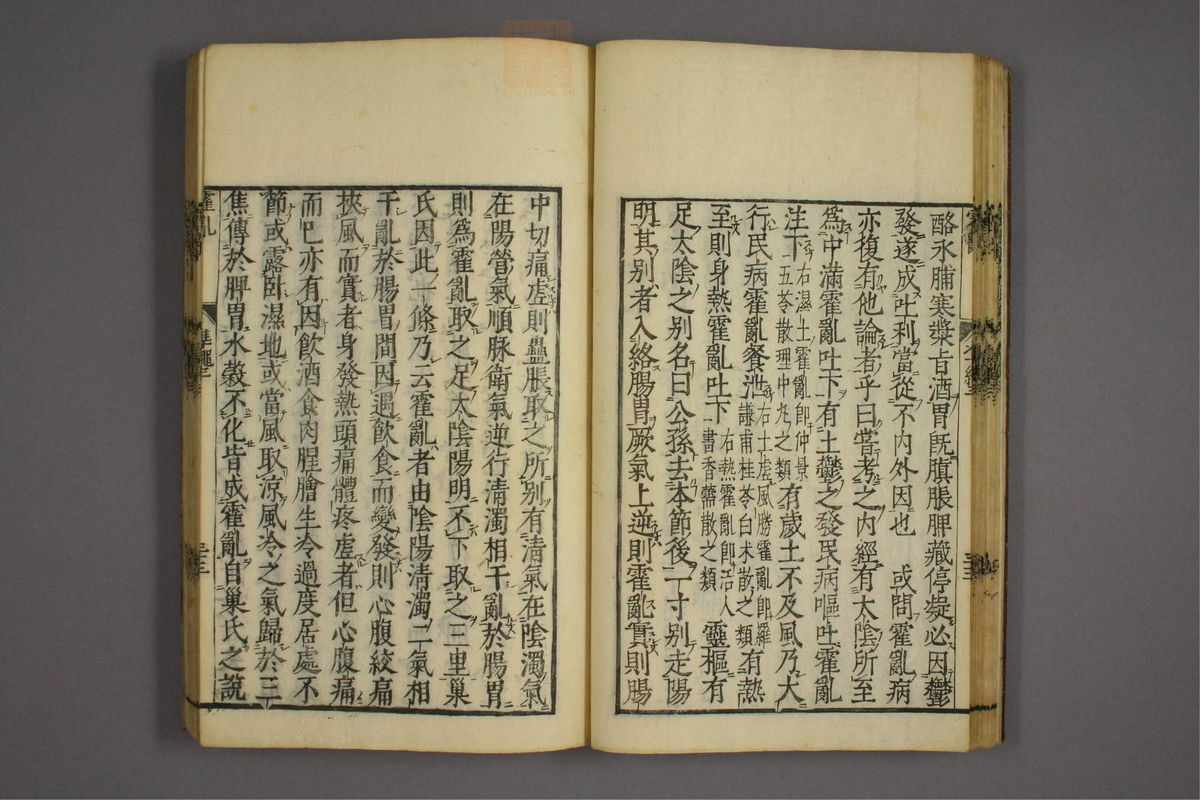 酪水脯寒漿旨酒胃既䐜脹脾藏停凝必因鬱
發遂成吐利當從不内外因也　或問霍亂病
亦復有他論者乎曰嘗考之内經有太陰所至
爲中滿霍亂吐下有土鬱之發民病嘔吐霍亂
注下右濕土霍亂卽仲景五苓散理中丸之類有歲土不及風乃大
行民病霍亂飧泄右土虚風勝霍亂卽羅謙甫桂苓白术散之類有熱
至則身熱霍亂吐下右熱霍亂卽活人書香薷散之類靈樞有
足太陰之别名曰公孫去本節後一寸别走陽
明其别者入絡腸胃厥氣上逆則霍亂實則腸
中切痛虚則蠱脹取之所别有清氣在陰濁氣
在陽營氣順脉衛氣逆行清濁相干亂於腸胃
則爲霍亂取之足太陰陽明不下取之三里巢
氏因此一條乃云霍亂者由陰陽清濁二氣相
干亂於腸胃間因遇飲食而變發則心腹絞痛
挾風而實者身發熱頭痛體疼虚者但心腹痛
而已亦有因飲酒食肉腥膾生冷過度居處不
節或露卧濕地或當風取凉風冷之氣歸於三
焦傳於脾胃水榖不化皆成霍亂自巢氏之說
霍亂
準繩
三三